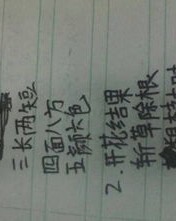 三长两短
四面八方
五颜六色
2.开花结果
斩草除根